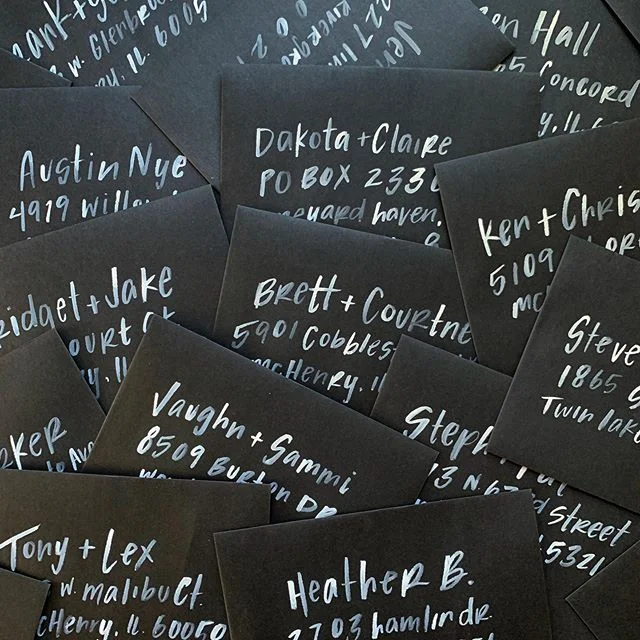 W. Glenbro
IL 60051
Jen
27
en Hall
Concord
Austin Nye
4919 Willow
Dakota + Claire
PO BOX 2330
neyard haven,
Ken + Chris
5109
MC
ridget + Jake
ourt Ct
y, IL
Brett + Courtne
5901 Cobbles
McHenry, IL
Steve
1865
Twin lake
Vaughn + Sammi
8509 Burton DR
Steph
3 N 63rd Street
5321
rker
Tony + Lex
W. Malibu Ct.
cHenry, IL 60050
Heather B.
2703 hamlin dr.